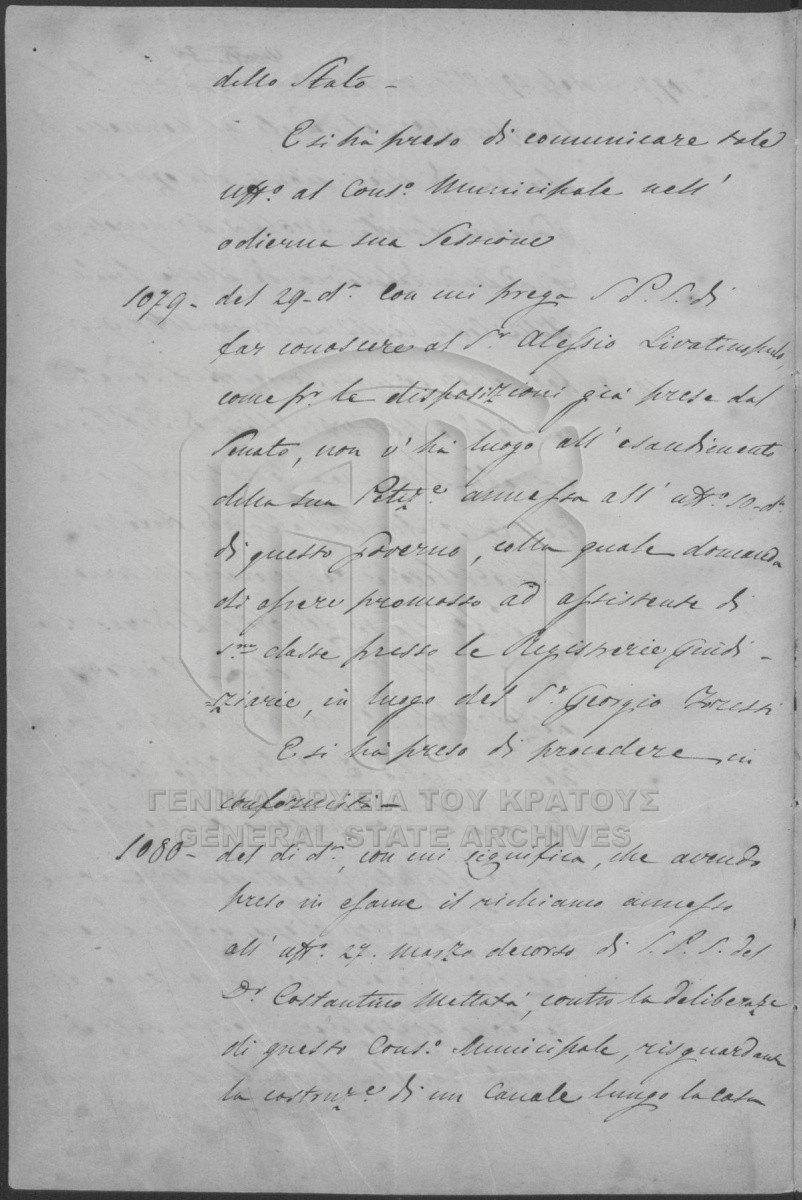 dello Stato –
E si hà preso di comunicare tale
uffo. al Conso. Municipale nell'
odierna sua Sessione
1079 – del 29 do. con cui prega S. P. S. di
far conoscere al Sr. Alessio
come pr. le disposizioni già prese dal
Senato, non v'hà luogo all'esaudimento
della sua Petize. annessa all'uffo. 10 do.
di questo Governo, colla quale domanda
di essere promosso ad assistente di
classe presso le Registrerie Giudi -
=ziarie, in luogo del Sr. Giorgio
E si hà preso di procedere in
conformità –
ΓΕΝΙΚΑ ΑΡΧΕΙΑ ΤΟΥ ΚΡΑΤΟΥΣ
GENERAL STATE ARCHIVES
1080 – del di do., con cui significa, che avendo
preso in esame il richiamo annesso
all'uffo. 27. Marzo decorso di S. P. S. del
Dr. Costantino Mettatà, contro la deliberaze
di questo Conso. Municipale, risguardante
la costruze. di un Canale lungo la Casa